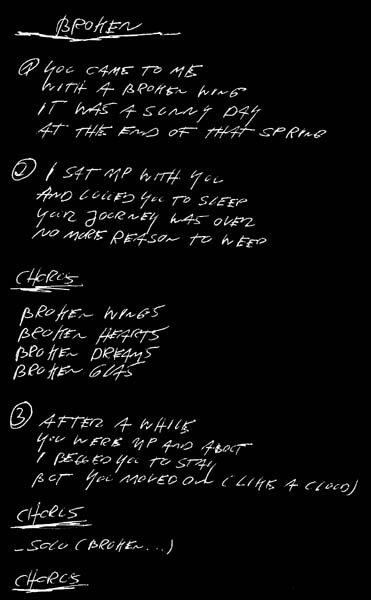 BROKEN
① YOU CAME TO ME
WITH A BROKEN WING
IT WAS A SUNNY DAY
AT THE END OF THAT SPRING
② I SAT UP WITH YOU
AND LULLED YOU TO SLEEP
YOUR JOURNEY WAS OVER
NO MORE REASON TO WEEP
CHORUS
BROKEN WINGS
BROKEN HEARTS
BROKEN DREAMS
BROKEN GLAS
③ AFTER A WHILE
YOU WERE UP AND ABOUT
I BEGGED YOU TO STAY
BUT YOU MOVED ON (LIKE A CLOUD)
CHORUS
-SOLO (BROKEN...)
CHORUS